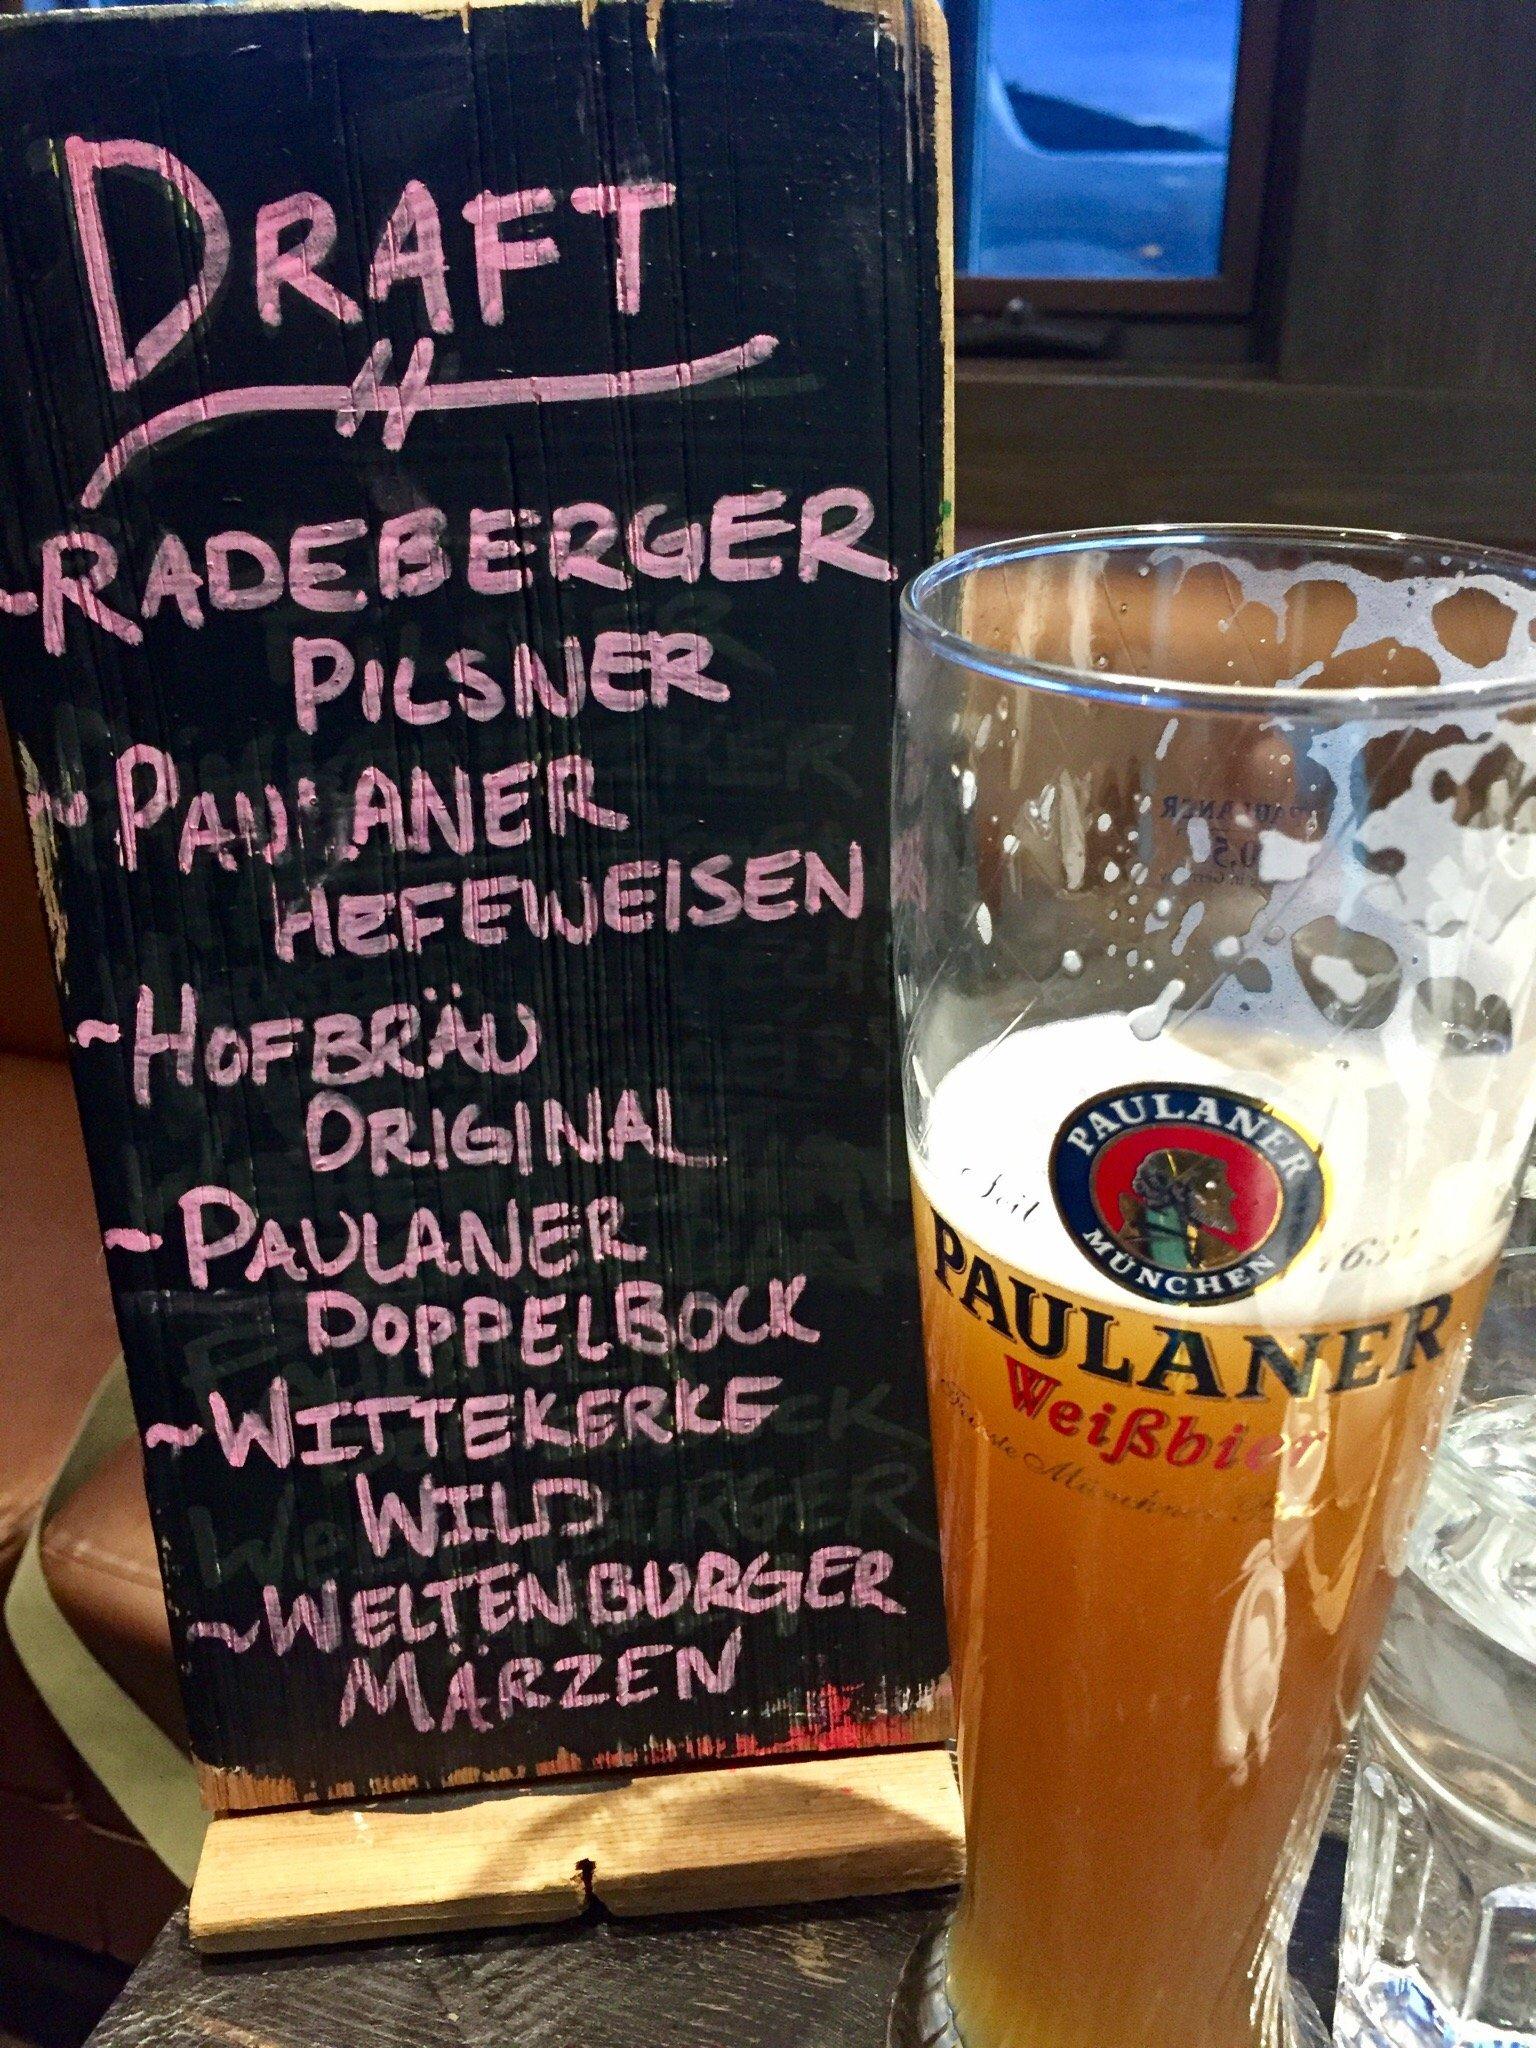 DRAFT
~RADEBERGER
PILSNER
~PAULANER
HEFEWEISEN
~HOFBRÄU
ORIGINAL
~PAULANER
DOPPELBOCK
~WITTEKERKE
WILD
~WELTENBURGER
MÄRZEN
PAULANER
0,5
PAULANER
MÜNCHEN
Seit
PAULANER
Weißbier